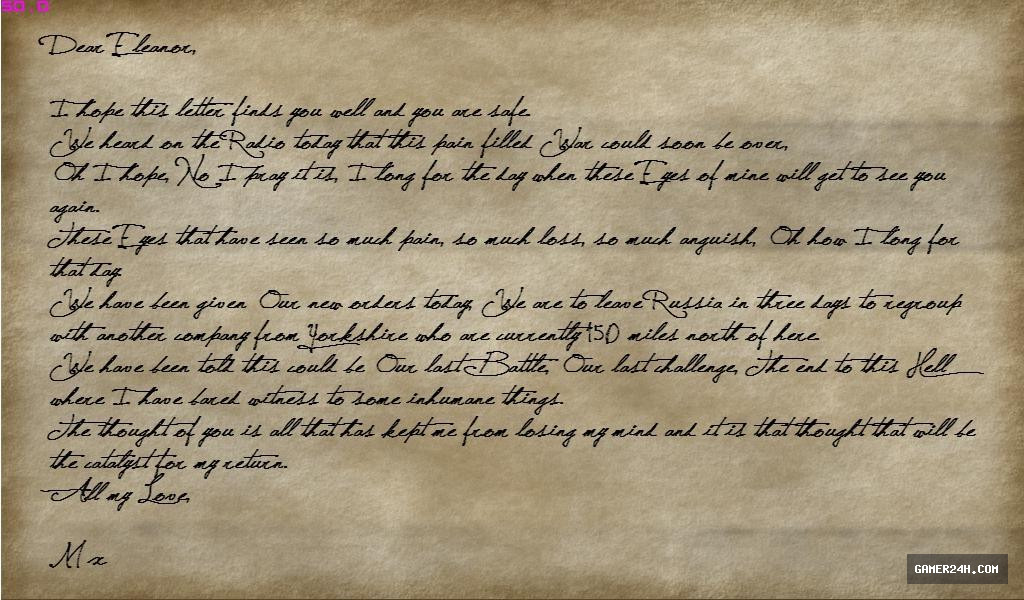 50.0
Dear Eleanor,
I hope this letter finds you well and you are safe.
We heard on the Radio today that this pain filled War could soon be over,
Oh I hope, No I pray it is, I long for the day when these Eyes of mine will get to see you
again.
These Eyes that have seen so much pain, so much loss, so much anguish, Oh how I long for
that day.
We have been given Our new orders today, We are to leave Russia in three days to regroup
with another company from Yorkshire who are currently 150 miles north of here.
We have been told this could be Our last Battle, Our last challenge, The end to this Hell
where I have bared witness to some inhumane things.
The thought of you is all that has kept me from losing my mind and it is that thought that will be
the catalyst for my return.
All my Love,
M x
GAMER24H.COM